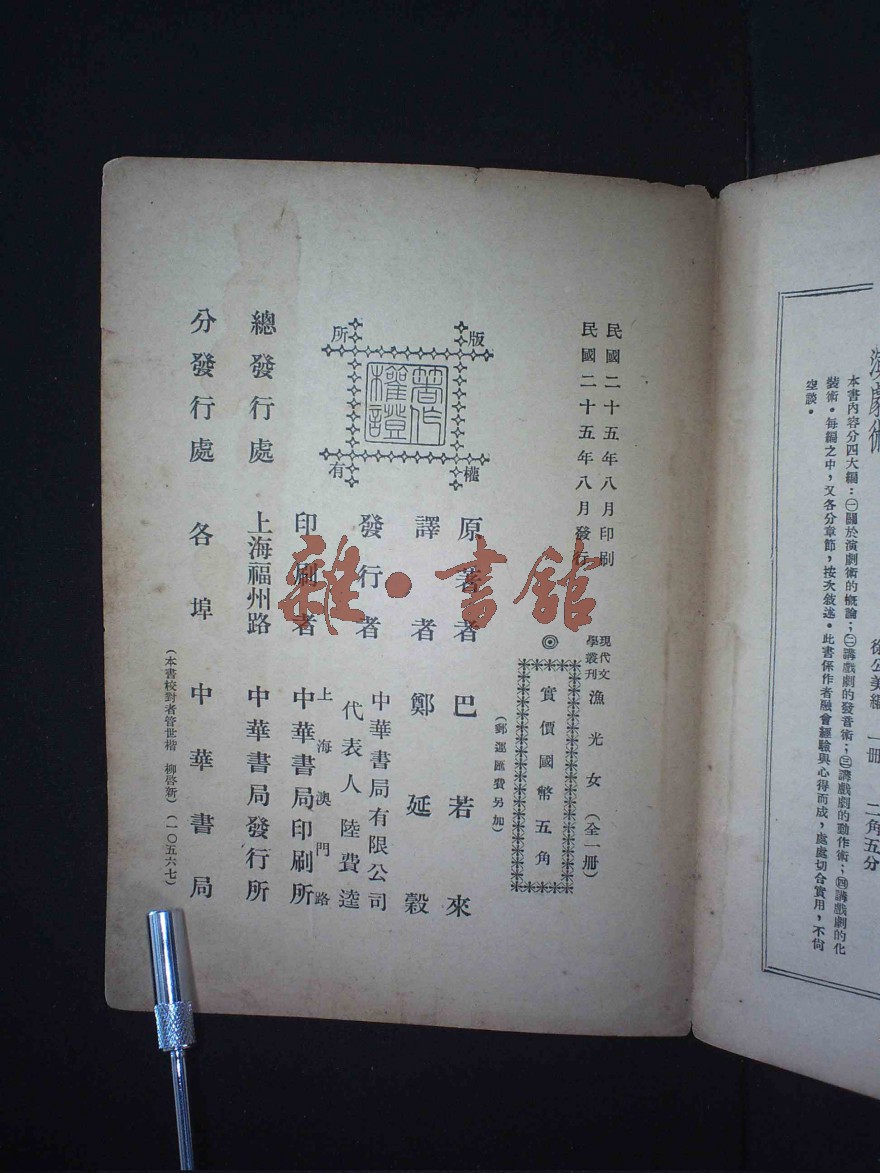 民國二十五年八月印刷
民國二十五年八月發行
現代文學叢刊 漁光女（全一冊）
◎
實價國幣五角
（郵運匯費另加）
版權所有
著作權證
原著者 巴若來
譯者 鄭延穀
發行者 中華書局有限公司
代表人 陸費逵
印刷者 上海澳門路
中華書局印刷所
總發行處 上海福州路 中華書局發行所
分發行處 各埠 中華書局
（本書校對者管世楷 柳啓新）（一〇五六七）
雜·書館
演劇術
徐公美編 一冊 二角五分
本書內容分四大編：㊀關於演劇術的概論；㊁講戲劇的發音術；㊂講戲劇的動作術；㊃講戲劇的化
裝術。每編之中，又各分章節，按次敘述。此書係作者融會經驗與心得而成，處處切合實用，不尙
空談。